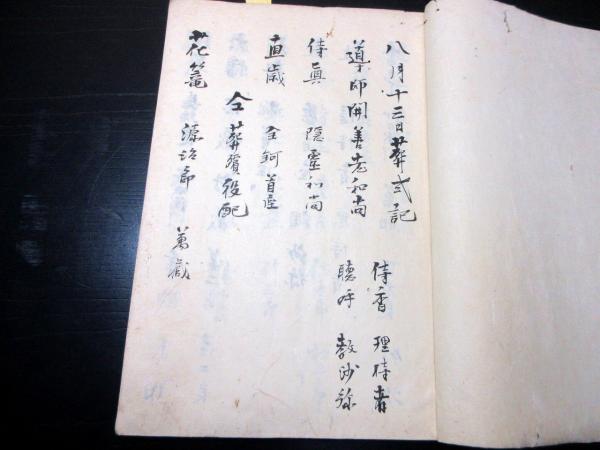 八月十三日葬式記
導師開善老和尚 侍香 理侍者
侍眞 隠霊和尚 聴呼 教沙弥
直歳 全鉤首座
仝葬儀役配
花篭 源治郎 萬蔵